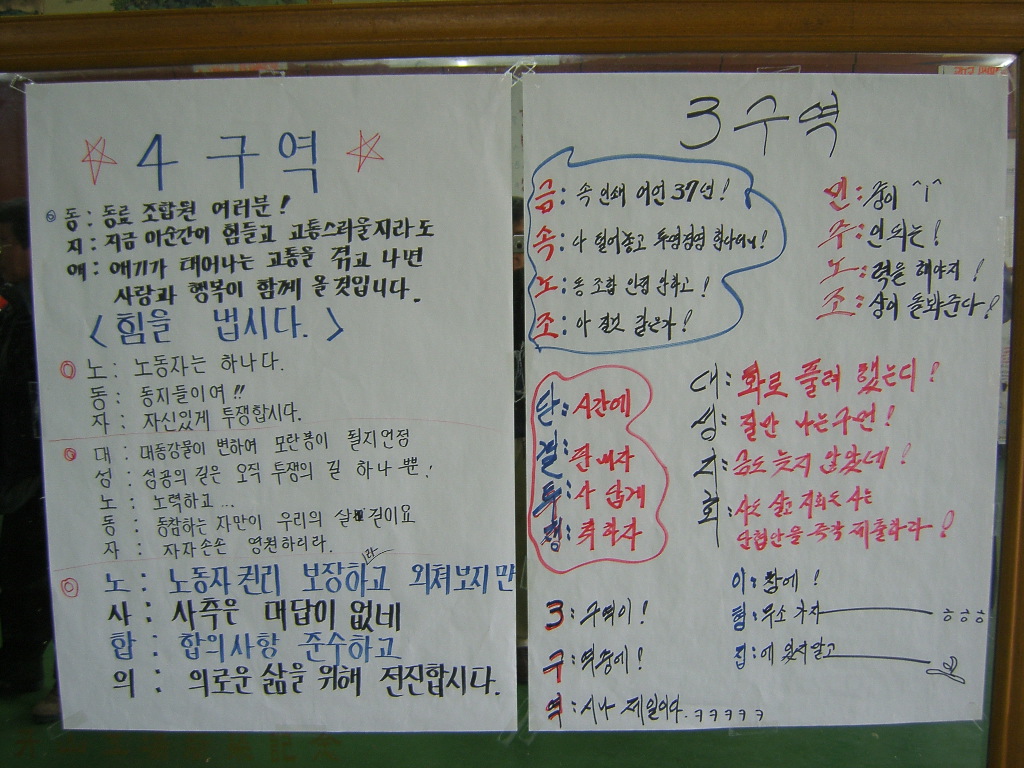 ☆ 4 구역 ☆
◎ 동 : 동료 조합원 여러분!
지 : 지금 이순간이 힘들고 고통스러울지라도
애 : 애기가 태어나는 고통을 겪고 나면
사랑과 행복이 함께 올것입니다.
< 힘을 냅시다. >
◎ 노 : 노동자는 하나다.
동 : 동지들이여!!
자 : 자신있게 투쟁합시다.
◎ 대 : 대동강물이 변하여 모란봉이 될지언정
성 : 성공의 길은 오직 투쟁의 길 하나 뿐!
노 : 노력하고...
동 : 동참하는 자만이 우리의 살 길이요
자 : 자자손손 영원하리라.
◎ 노 : 노동자 권리 보장하고라 외쳐보지만
사 : 사측은 대답이 없네
합 : 합의사항 준수하고
의 : 의로운 삶을 위해 전진합시다.
3 구역
금 : 속인쇄 어언 37년!
속 : 다 털어놓고 투명경영 합시다!
노 : 동조합 인정 안하고!
조 : 아 질것 같은가!
민 : 중이 ^|^
주 : 인되는!
노 : 력을 해야지!
조 : 상이 돌봐준다!
단 : 시간에
결 : 판내자
투 : 사 답게
쟁 : 취하자
대 : 화로 풀려 했는디!
성 : 질만 나는구먼!
지 : 금도 늦지 않았네!
회 : 사도 살고 지회도 사는
단협안을 즉각 제출하라!
3 : 구역이!
구 : 역중에!
역 : 시나 제일이다. ㅋㅋㅋㅋㅋ
이 : 참에!
험 : 무소 가자 ㅎㅎㅎ
집 : 에 있지말고